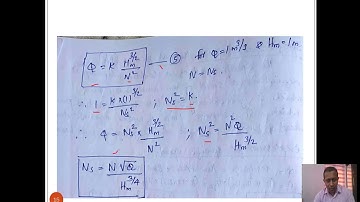 Q = K H_m^{3/2} / N^2 —— (5) for Q = 1 m³/s & H_m = 1m
N = N_s.
∴ 1 = K×(1)^{3/2} / N_s^2 ; N_s^2 = K.
∴ Q = N_s^2 × H_m^{3/2} / N^2 ; N_s^2 = N^2 Q / H_m^{3/2}
N_s = N √Q / H_m^{3/4}